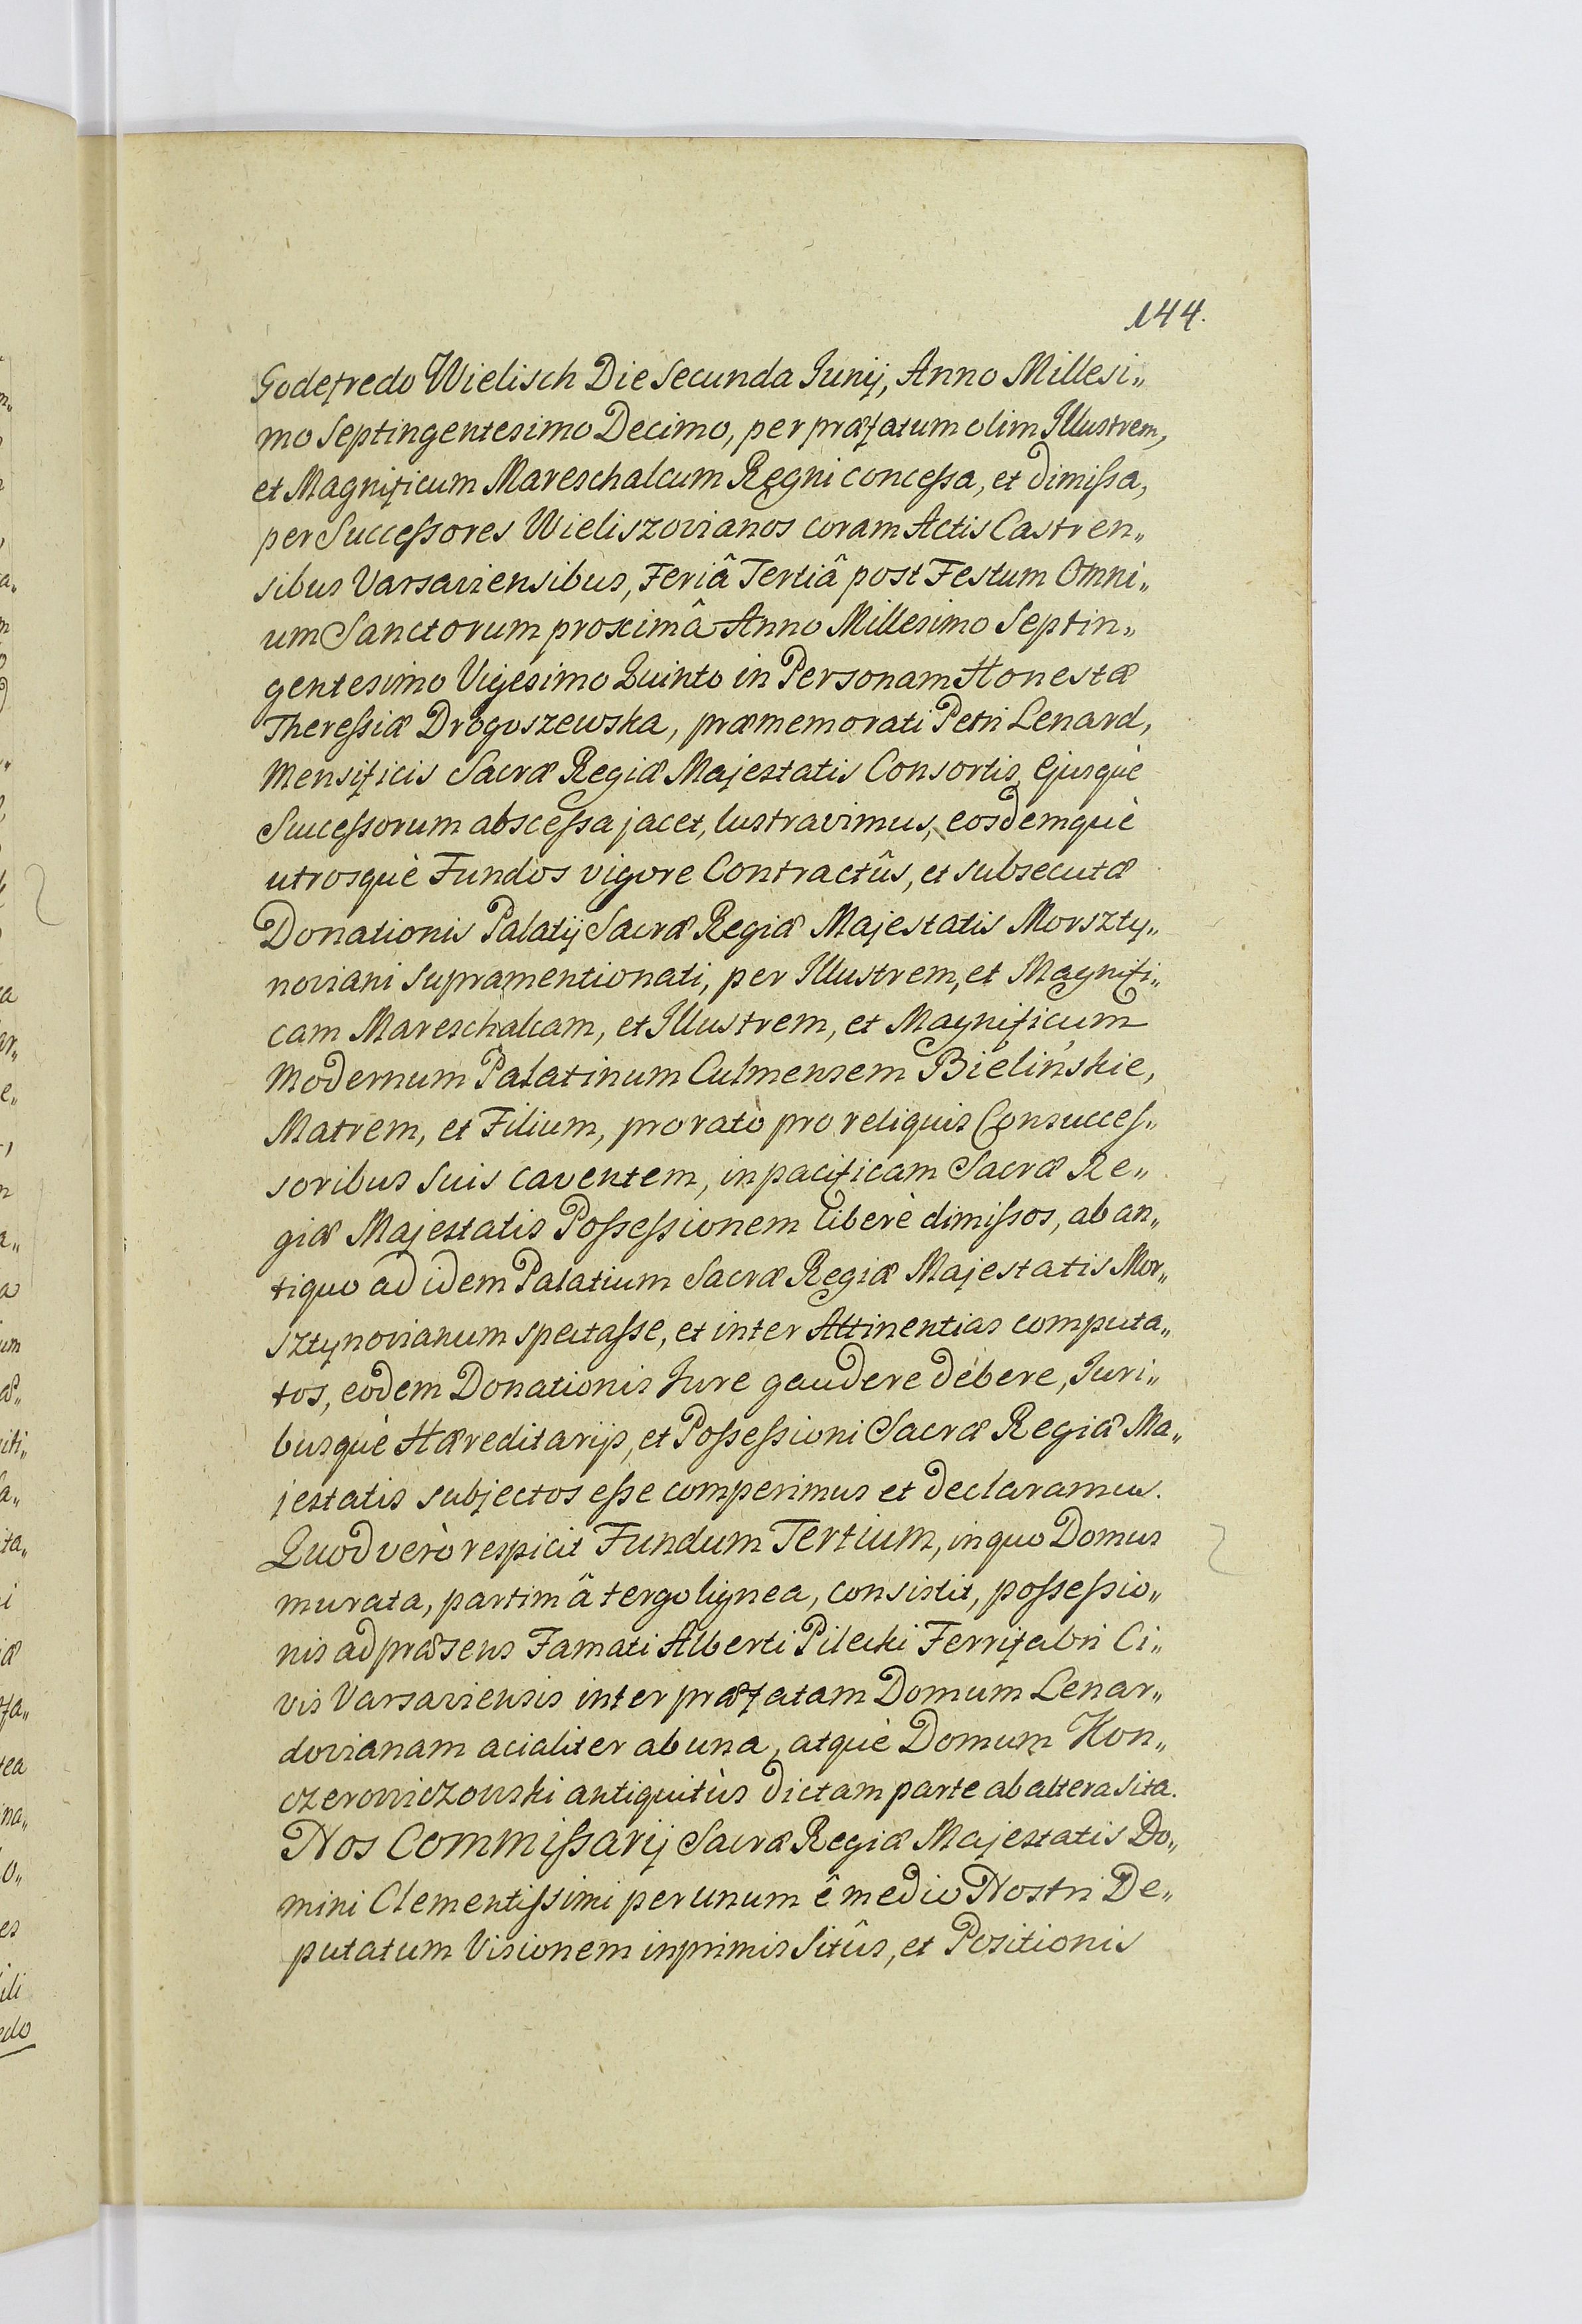 144.
Godefredo Wielisch Die Secunda Junij, Anno Millesi„
mo Septingentesimo Decimo, per præfatum olim Illustrem,
et Magnificum Mareschalcum Regni concessa, et dimissa,
per Successores Wieliszovianos coram Actis Castren„
sibus Varsaviensibus, Feriâ Tertiâ post Festum Omni„
um Sanctorum proximâ Anno Millesimo Septin„
gentesimo Vigesimo Quinto in Personam Honestæ
Theressiæ Drogoszewska, præmemorati Petri Lenard,
Mensificis Sacræ Regiæ Majestatis Consortis, Ejusquè
Successorum abscessa jacet, lustravimus, eosdemquè
utrosquè Fundos vigore Contractûs, et subsecutæ
Donationis Palatij Sacræ Regiæ Majestatis Morszty„
noviani supramentionati, per Illustrem, et Magnifi„
cam Mareschalcam, et Illustrem, et Magnificum
Modernum Palatinum Culmensem Bielińskie,
Matrem, et Filium, pro rato pro reliquis Consucces„
soribus suis caventem, in pacificam Sacræ Re„
giæ Majestatis Possessionem liberè dimissos, ab an„
tiquo ad idem Palatium Sacræ Regiæ Majestatis Mor„
sztynovianum spectasse, et inter Attinentias computa„
tos, eodem Donationis Jure gaudere debere, Juri„
busquè Hæreditarijs, et Possessioni Sacræ Regiæ Ma„
jestatis subjectos esse comperimus et declaramus.
Quod verò respicit Fundum Tertium, in quo Domus
murata, partim â tergo lignea, consistit, possessio„
nis ad præsens Famati Alberti Pilecki Ferrifabri Ci„
vis Varsaviensis inter præfatam Domum Lenar„
dovianam acialiter ab una, atquè Domum Kon„
czerowiczowski antiquitùs dictam parte ab altera sita.
Nos Commissarij Sacræ Regiæ Majestatis Do„
mini Clementissimi per unum ê medio Nostri De„
putatum Visionem inprimis Sitûs, et Positionis